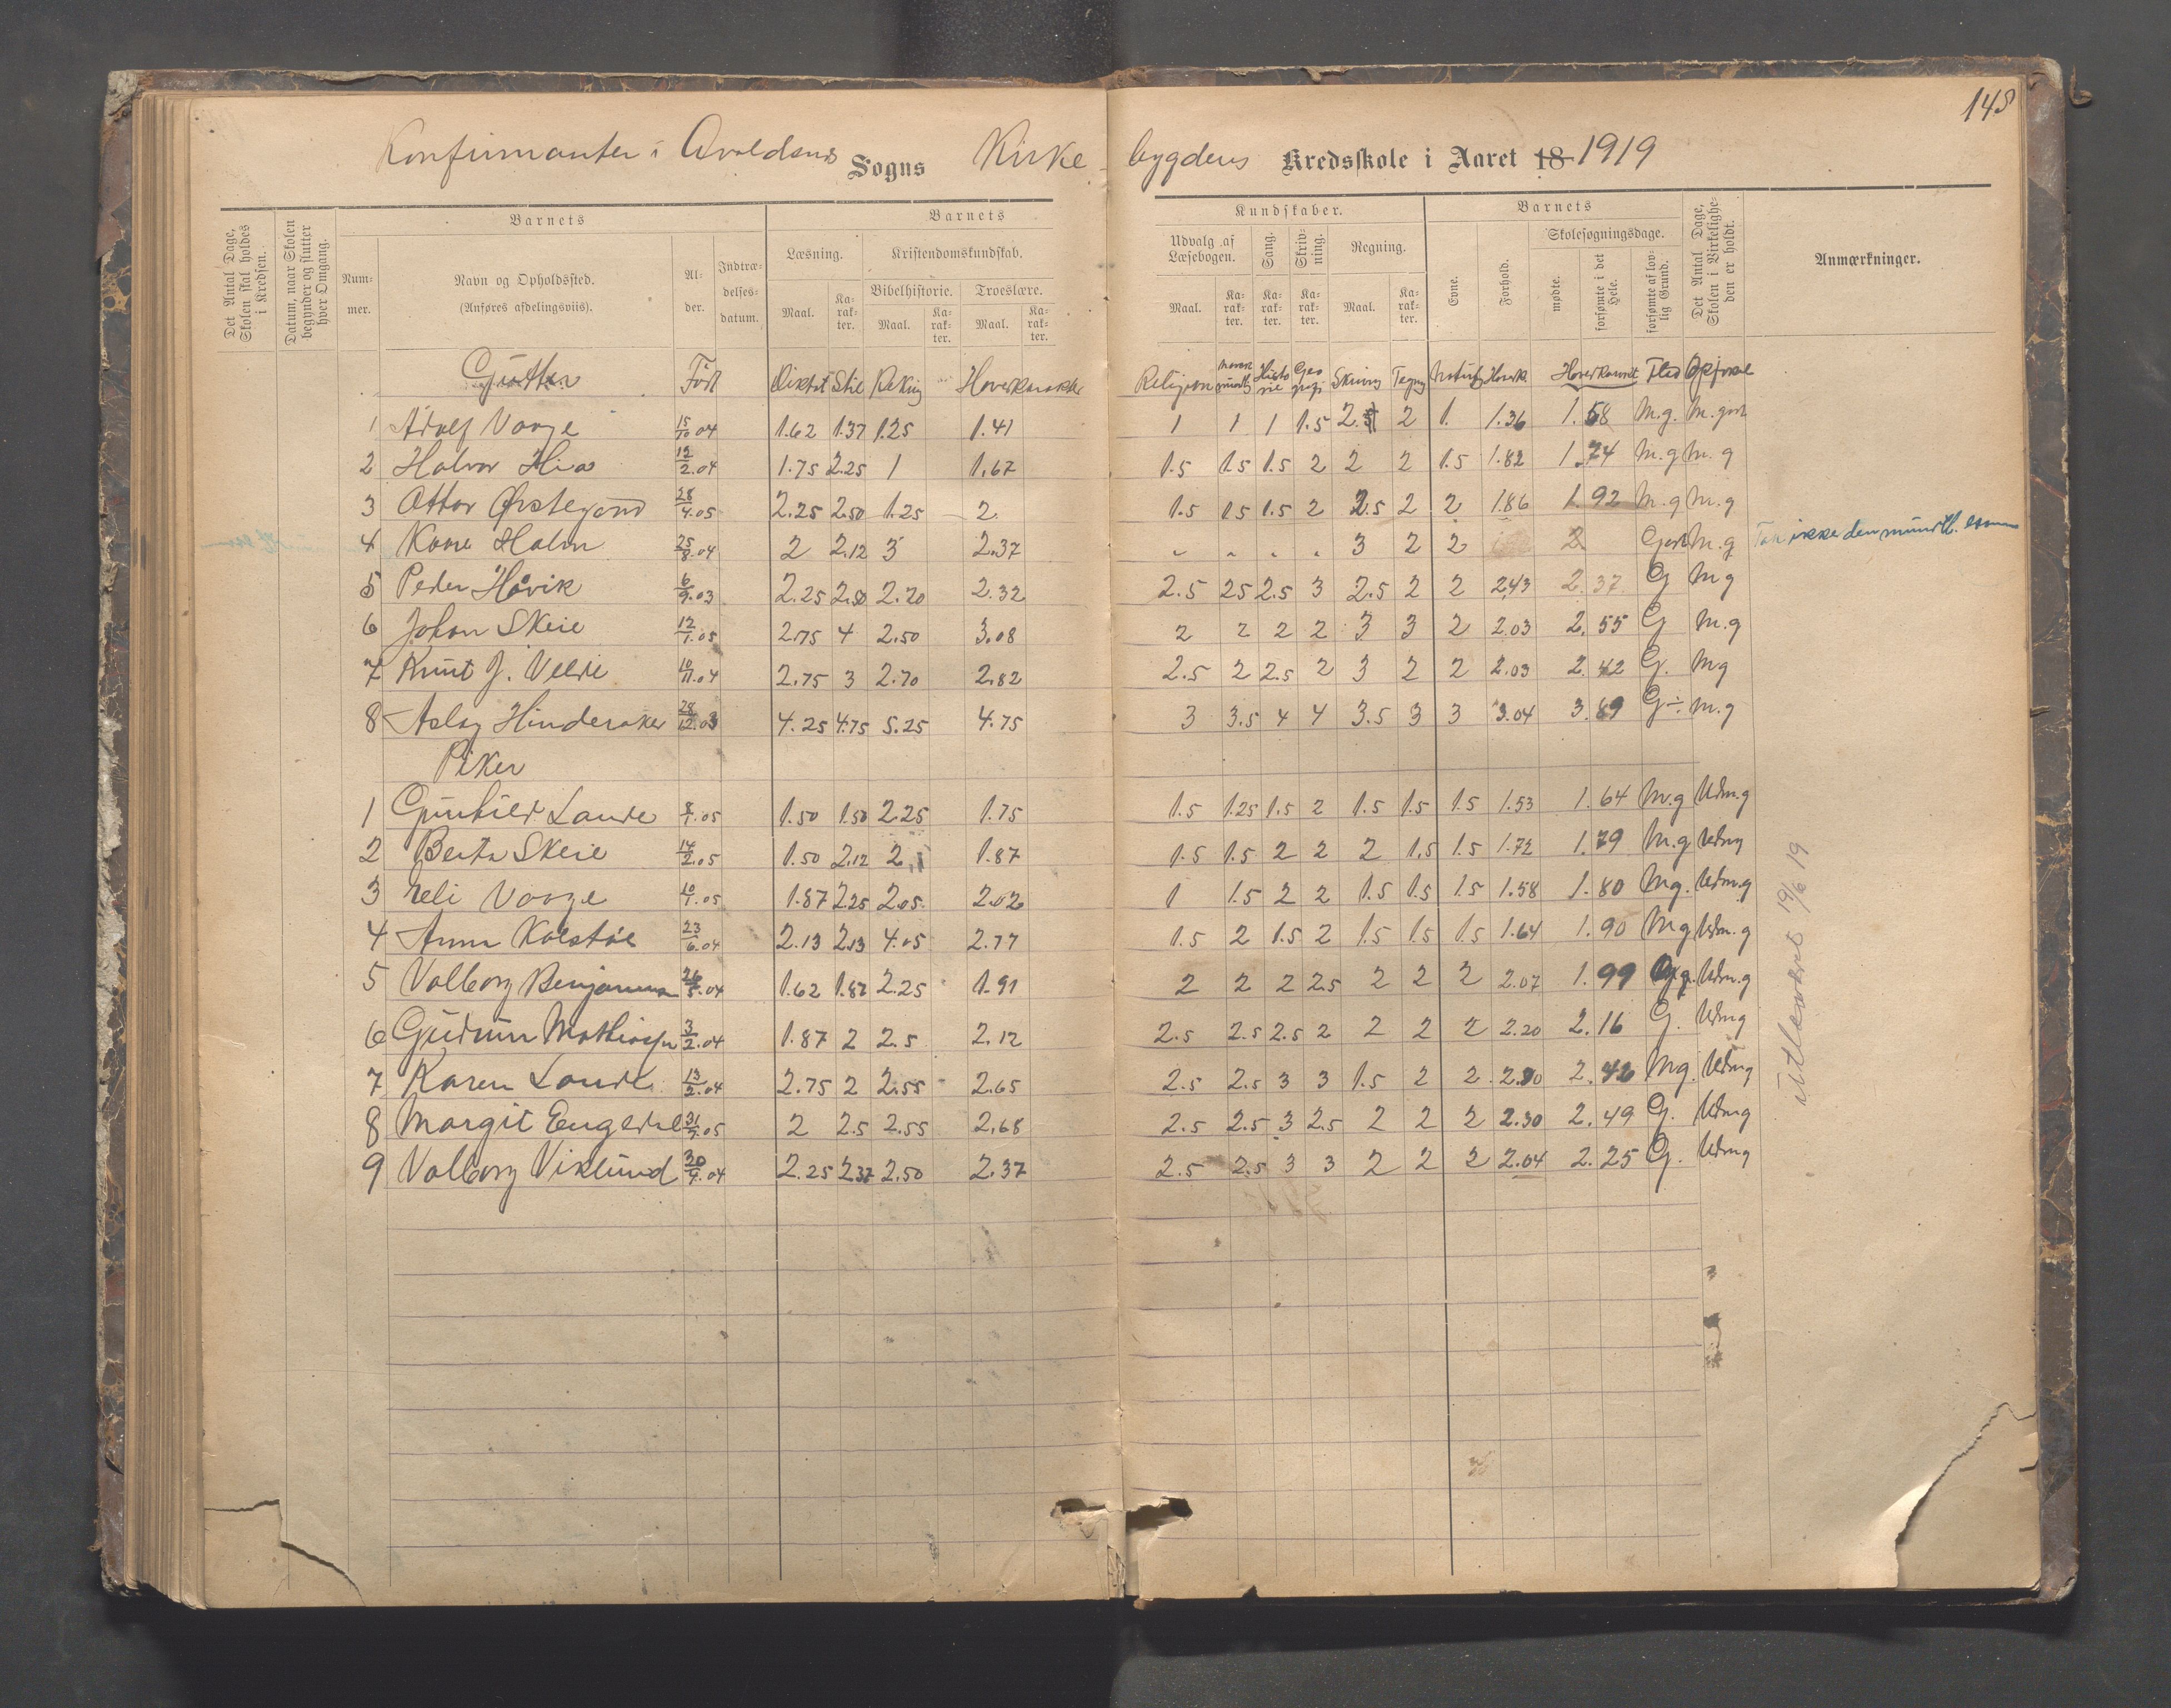 148
Konfirmanter i Avaldsnes Sogns Kirke-bygdens Kredsskole i Aaret 18 1919
Det Antal Dage, Skolen skal holdes i Kredsen.
Datum, naar Skolen begynder og slutter hver Omgang.
Num-mer.
Barnets
Navn og Opholdssted.
(Anføres afdelingsviis).
Al-der.
Indtræ-delses-datum.
Barnets
Læsning.
Maal.
Ka-rak-ter.
Kristendomskundskab.
Bibelhistorie.
Maal.
Ka-rak-ter.
Troeslære.
Maal.
Ka-rak-ter.
Kundskaber.
Udvalg af Læsebogen.
Maal.
Ka-rak-ter.
Sang.
Ka-rak-ter.
Skriv-ning.
Ka-rak-ter.
Regning.
Maal.
Ka-rak-ter.
Barnets
Evne.
Forhold.
Skolesøgningsdage.
mødte.
forsømte i det Hele.
forsømte af lov-lig Grund.
Det Antal Dage, Skolen i Virkelighe-den er holdt.
Anmærkninger.
Gutter Født Diktat Stil Rekning Hovedkarakter Religion norsk mundtl Histo rie Geo grafi Skrivng Tegng Naturf Hovedk Hovedkarakt Flid Opførsel
1 Adolf Vaage 15/10 04 1.62 1.37 1.25 1.41 1 1 1 1.5 2.5 2 1. 1.36 1.58 M.g. M.godt
2 Halvor Hia 12/2.04 1.75 2.25 1 1.67 1.5 1.5 1.5 2 2 2 1.5 1.82 1.74 M.g M.g
3 Ottar 28/4.05 2.25 2.50 1.25 2. 1.5 1.5 1.5 2 2.5 2 2 1.86 1.92 M.g M.g
4 Kaare Holm 25/8.04 2 2.12 3 2.37 " " " " 3 2 2 2. Godt M.g Tok ikke den mundtl. exam
5 Peder Håvik 6/9.03 2.25 2.50 2.20 2.32 2.5 25 2.5 3 2.5 2 2 2.43 2.37 G Mg
6 Johan Skeie 12/1.05 2.75 4 2.50 3.08 2 2 2 2 3 3 2 2.03 2.55 G M.g
7 Knut J. Velde 10/11.04 2.75 3 2.70 2.82 2.5 2 2.5 2 3 2 2 2.03 2.42 G. Mg
8 Aslag Hinderaker 28/12.03 4.25 4.75 5.25 4.75 3 3.5 4 4 3.5 3 3 3.04 3.89 G÷ M.g
Piker
1 Gunhild Lande 8/1.05 1.50 1.50 2.25 1.75 1.5 1.25 1.5 2 1.5 1.5 1.5 1.53 1.64 M.g Udm.g
2 Berta Skeie 14/2.05 1.50 2.12 2 1.87 1.5 1.5 2 2 2 1.5 1.5 1.72 1.79 M.g Udmg
3 Eli Vaage 10/1.05 1.87 2.25 2.05. 2.02 1 1.5 2 2 1.5 1.5 1.5 1.58 1.80 Mg. Udm.g
4 Anna Kolstøe 23/6.04 2.13 2.13 4.05 2.77 1.5 2 1.5 2 1.5 1.5 1.5 1.64 1.90 Mg Udm.g
5 Valborg Benjaminsen 26/5.04 1.62 1.87 2.25 1.91 2 2 2 2.5 2 2 2 2.07 1.99 Udm.g
6 Gudrun Mathiasen 3/2.04 1.87 2 2.5 2.12 2.5 2.5 2.5 2 2 2 2 2.20 2.16 G. Udmg
7 Karen Lande 13/2.04 2.75 2 2.55 2.65 2.5 2.5 3 3 1.5 2 2 2.30 2.42 Mg. Udmg
8 Margit Eugedal 31/7.05 2 2.5 2.55 2.68 2.5 2.5 3 2.5 2 2 2 2.30 2.49 G. Udmg
9 Valborg Viklund 30/9.04 2.25 2.37 2.50 2.37 2.5 2.5 3 3 2 2 2 2.04 2.25 G. Udmg
19/6 19